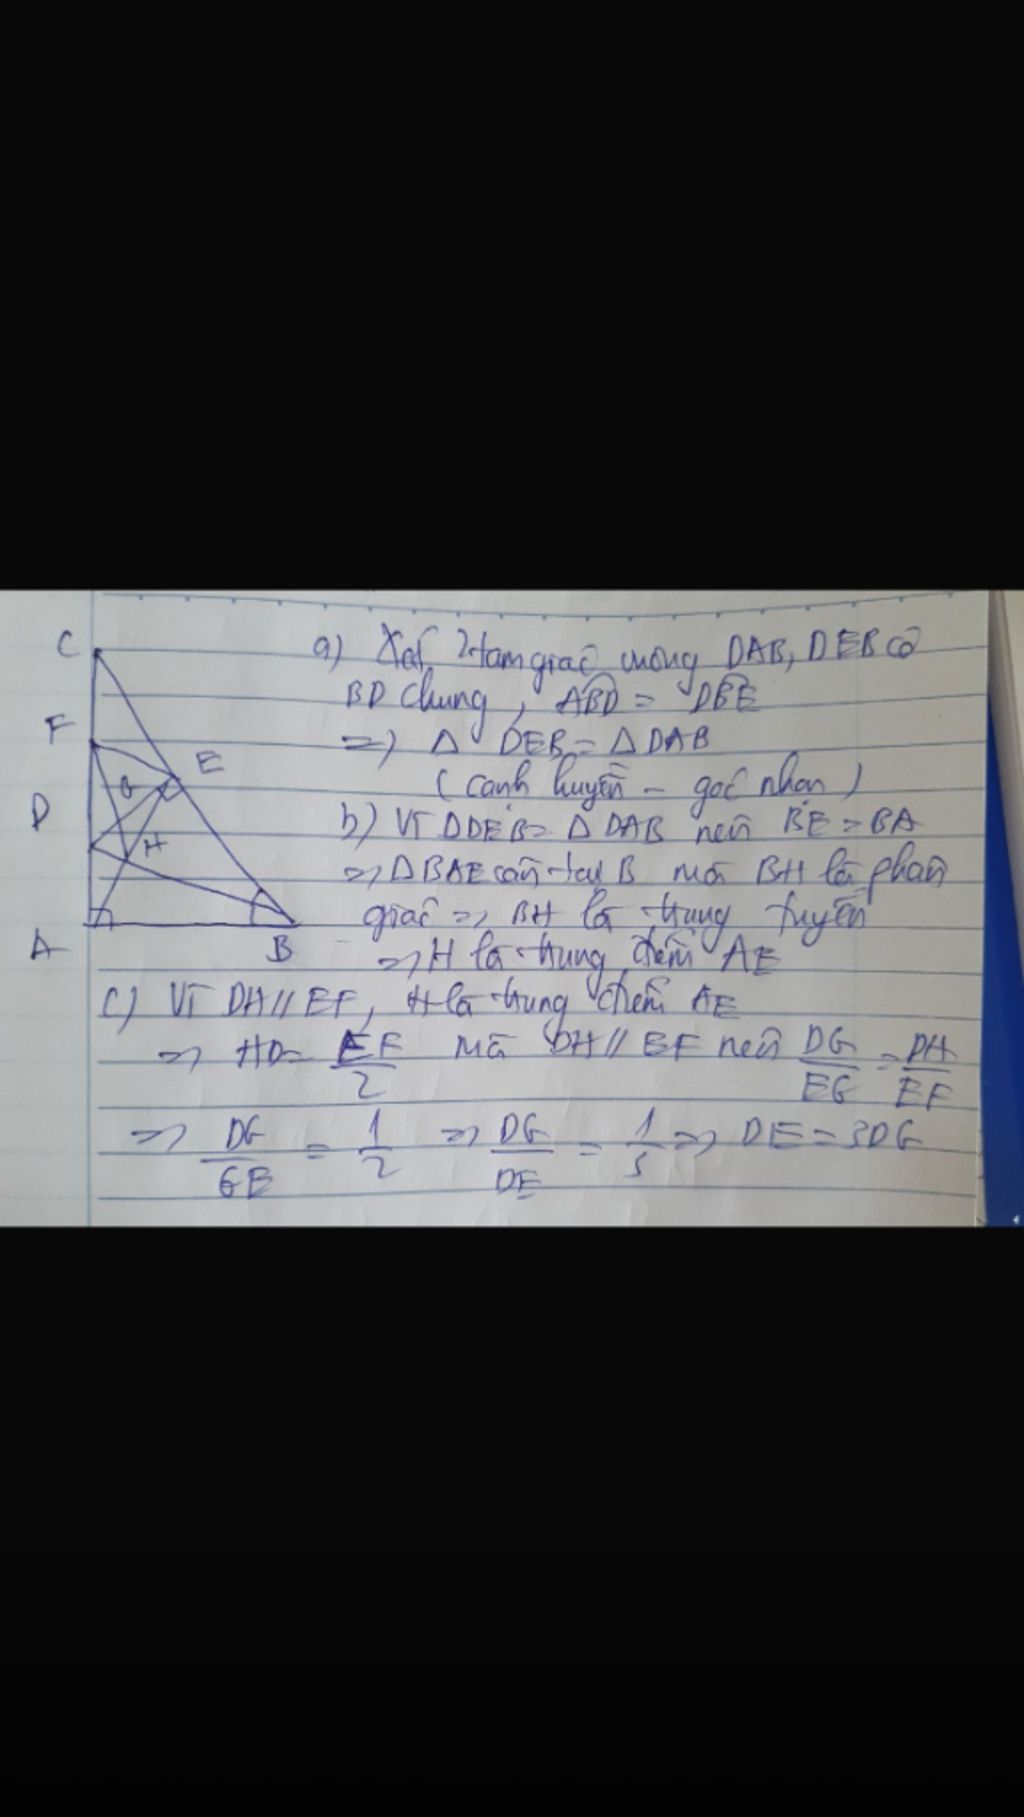 C
F
E
G
D
H
A
B
a) Xét 2 tam giác vuông DAB, DEB có
BD chung, ABD = DBE
=> Δ DEB = Δ DAB
(cạnh huyền - góc nhọn)
b) Vì ΔDEB = ΔDAB nên BE = BA
=> ΔBAE cân tại B mà BH là phân
giác => BH là trung tuyến
=> H là trung điểm AE
c) Vì DH // EF, H là trung điểm AE
=> HD = EF/2 mà DH // EF nên DG/EG = DH/EF
=> DG/GE = 1/2 => DG/DE = 1/3 => DE = 3DG